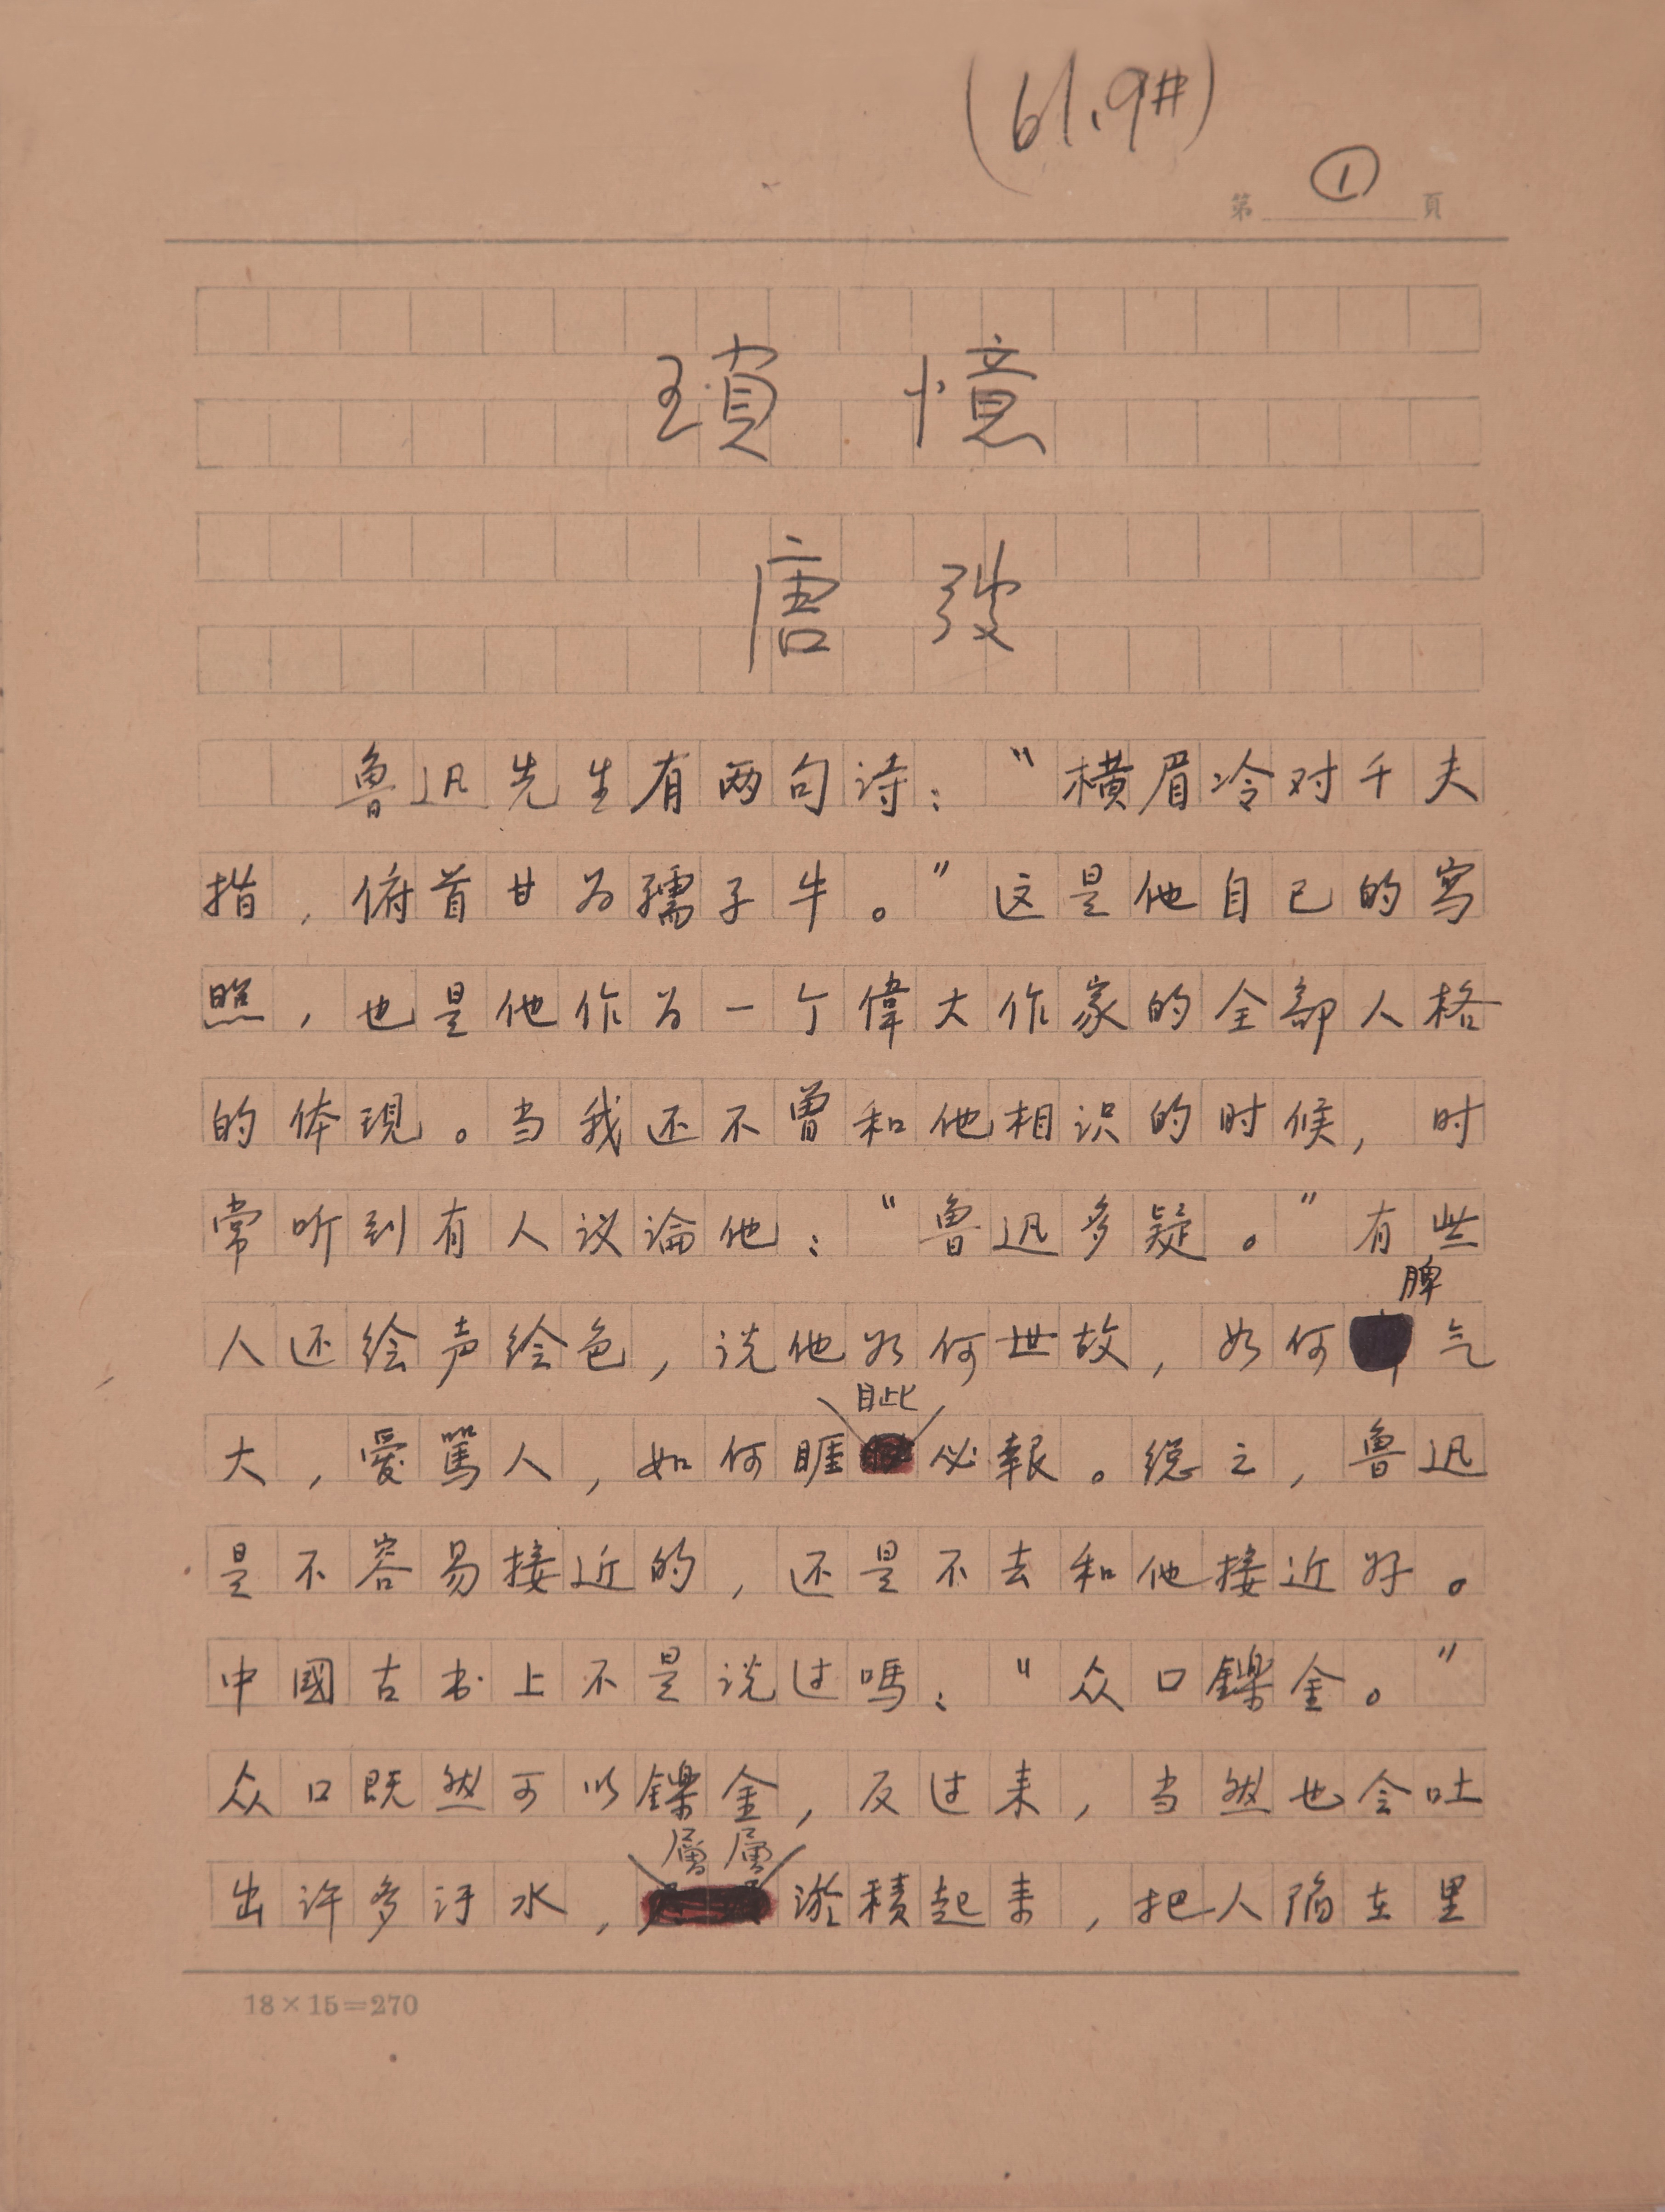 (61.9#)
第 ① 頁
瑣憶
唐弢
魯迅先生有两句诗：“横眉冷对千夫
指，俯首甘为孺子牛。”这是他自己的写
照，也是他作为一个偉大作家的全部人格
的体現。当我还不曾和他相识的时候，时
常听到有人议論他：“魯迅多疑。”有些
人还绘声绘色，说他如何世故，如何脾气
大，愛罵人，如何睚眦必報。総之，魯迅
是不容易接近的，还是不去和他接近好。
中國古书上不是说过嗎：“众口鑠金。”
众口既然可以鑠金，反过来，当然也会吐
出许多汙水，層層淤積起来，把人陷在里
18×15=270